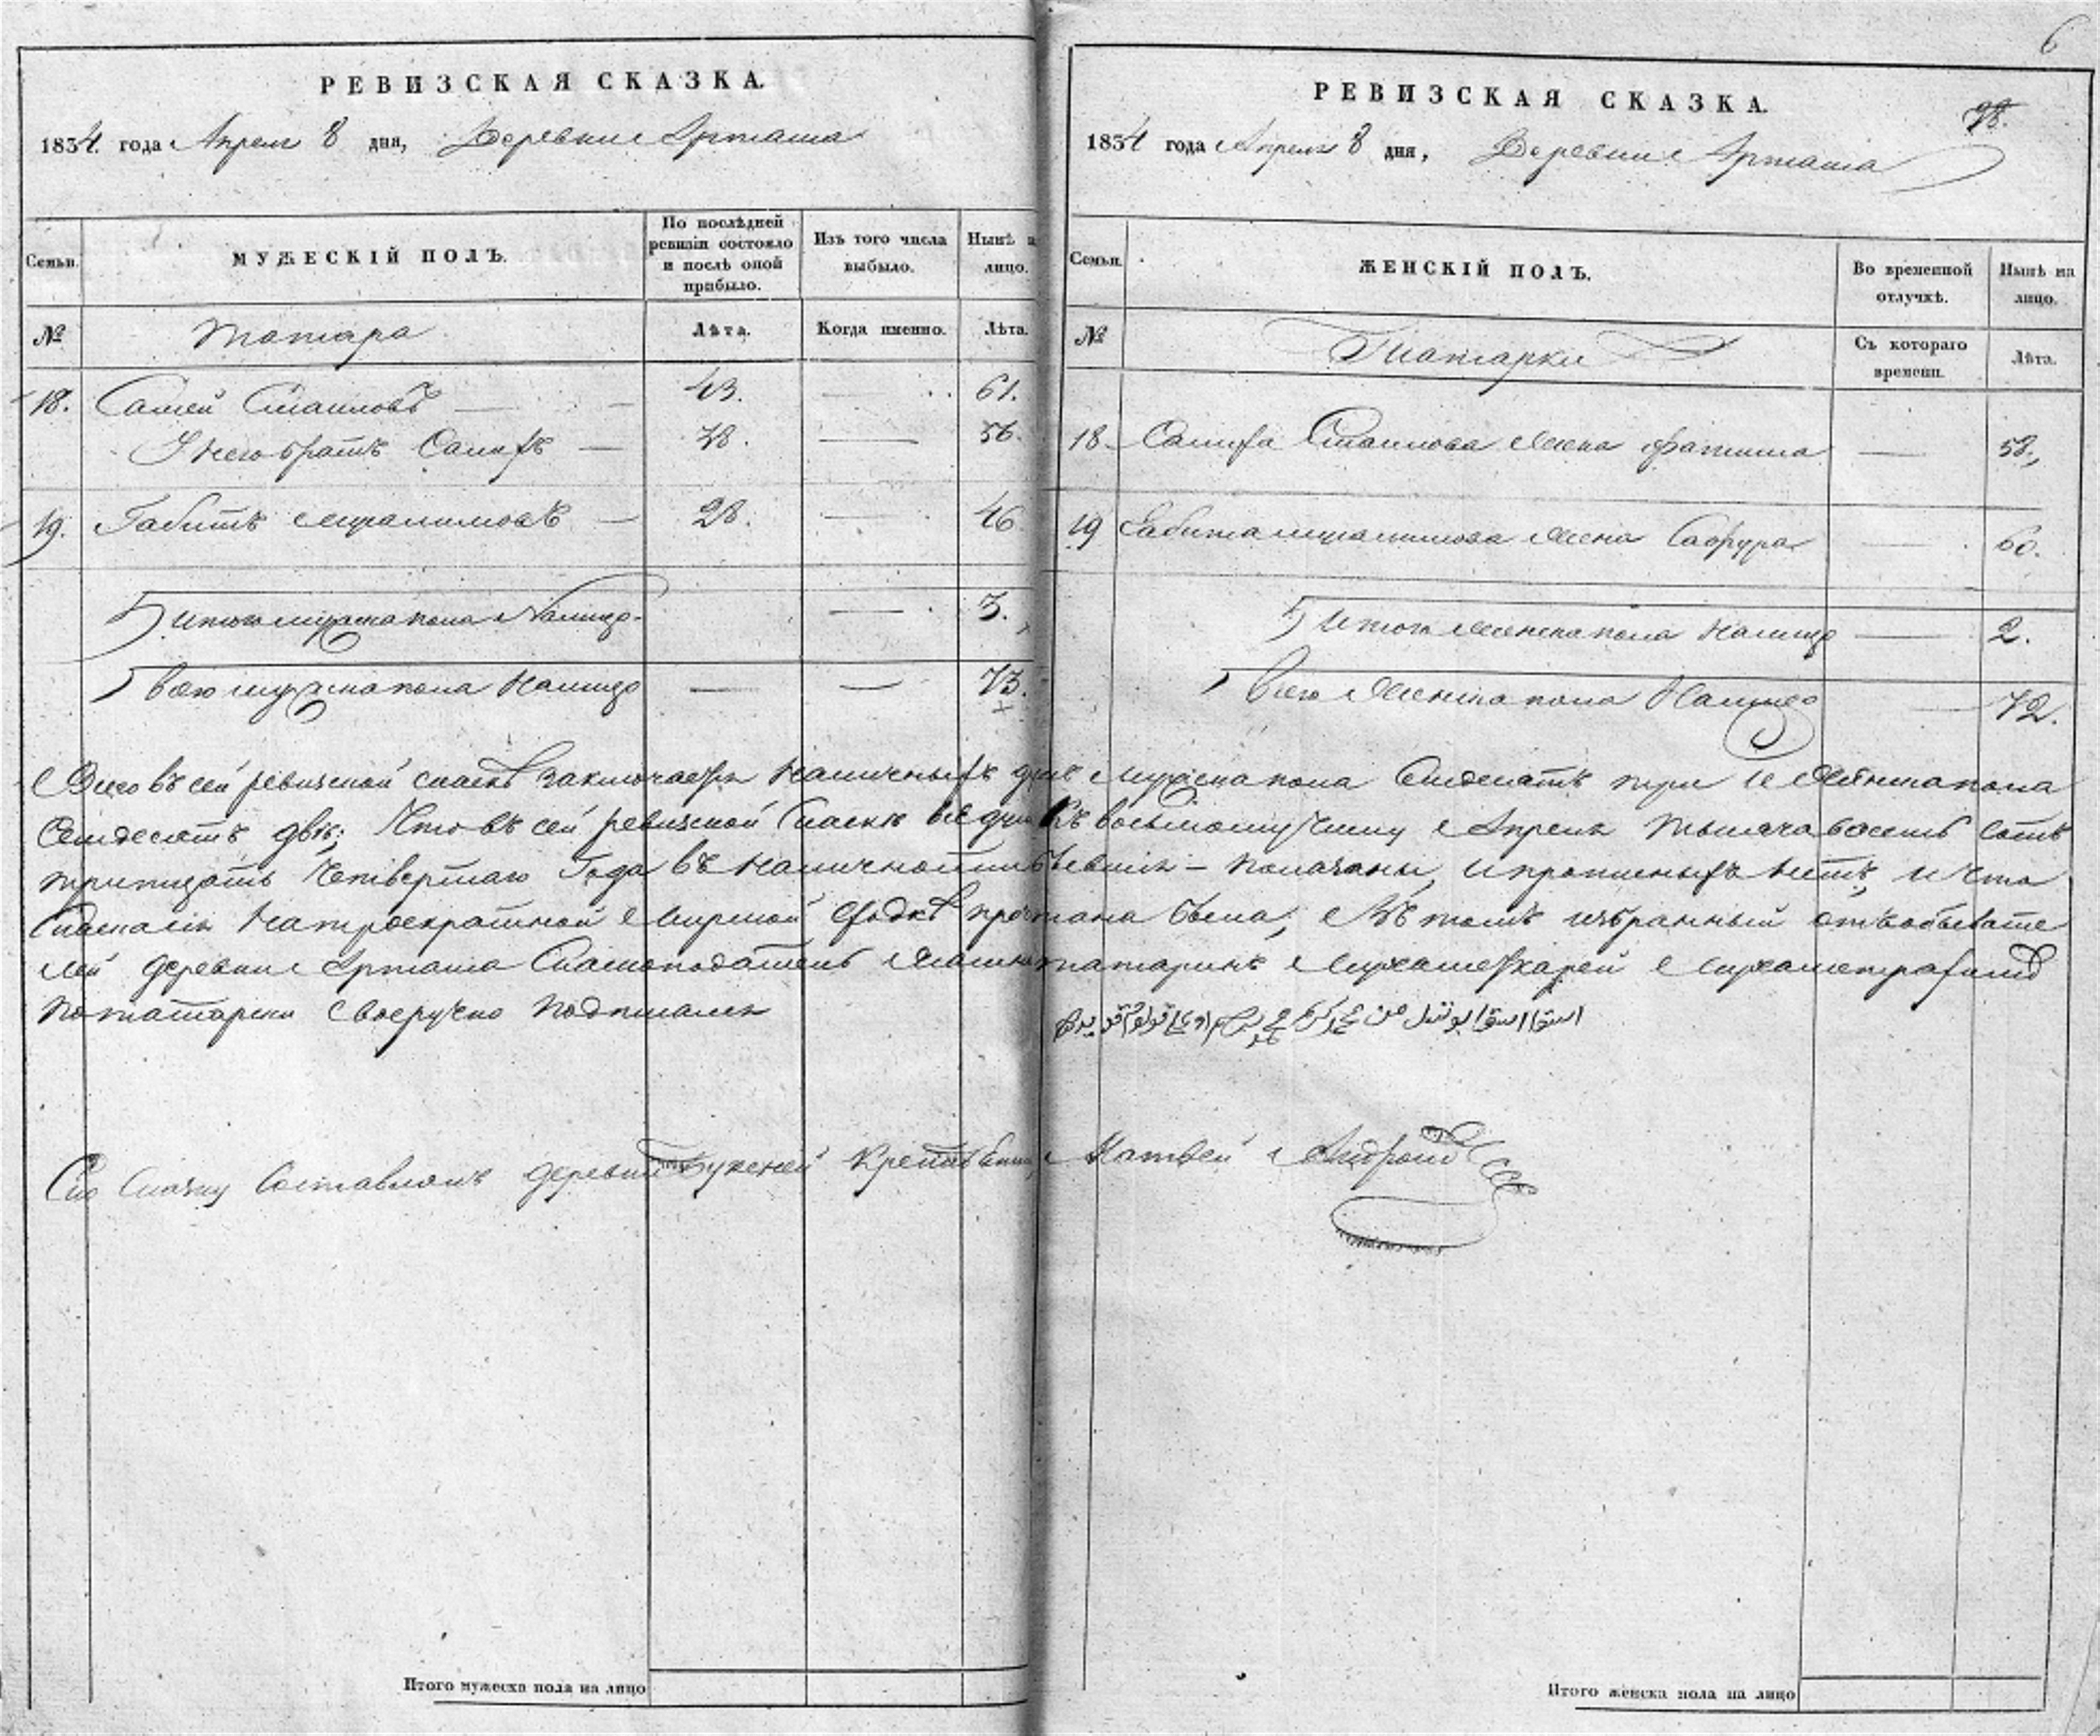 6
РЕВИЗСКАЯ СКАЗКА.
1834 года Апреля 8 дня, Деревни Арташа
Семьи.
МУЖЕСКІЙ ПОЛЪ.
По послѣдней ревизіи состояло и послѣ оной прибыло.
Изъ того числа выбыло.
Нынѣ на лицо.
№
Татара
Лѣта.
Когда именно.
Лѣта.
18. Самей Смаиловъ — 43. — 61.
У него братъ Салифъ — 38. — 56.
19. Габитъ Муслимовъ — 28. — 46
Итого мужеска пола Налицо — 3.
Всего мужеска пола Налицо — — 73.
РЕВИЗСКАЯ СКАЗКА.
98.
1834 года Апреля 8 дня, Деревни Арташа
Семьи.
ЖЕНСКІЙ ПОЛЪ.
Во временной отлучкѣ.
Нынѣ на лицо.
№
Татарки
Съ котораго времени.
Лѣта.
18 Салифа Смаилова Жена Фатима — 58.
19 Габита Муслимова Жена Сафура — 60.
Итого Женска пола Налицо — 2.
Всего Женска пола Налицо — 72.
Всего въ сей ревизской сказкѣ заключается Наличныхъ душъ мужеска пола Семдесятъ три и Женска пола
Семдесятъ двѣ; Что въ сей ревизской Сказке все души Къ восьмому Числу Апреля тысяча восемь сотъ
тритцать Четвертаго Года въ наличности — показаны, и прописныхъ нетъ, и что
Сказка на троекратной мирской сходкѣ прочитана была, Въ томъ избранный отъ обывате
лей деревни Арташа Сказкоподатель татаринъ
Потатарски Своеручно подписался
Сию Сказку Составлялъ деревни Крестьянинъ Матвей
Итого мужеска пола на лицо
Итого женска пола на лицо